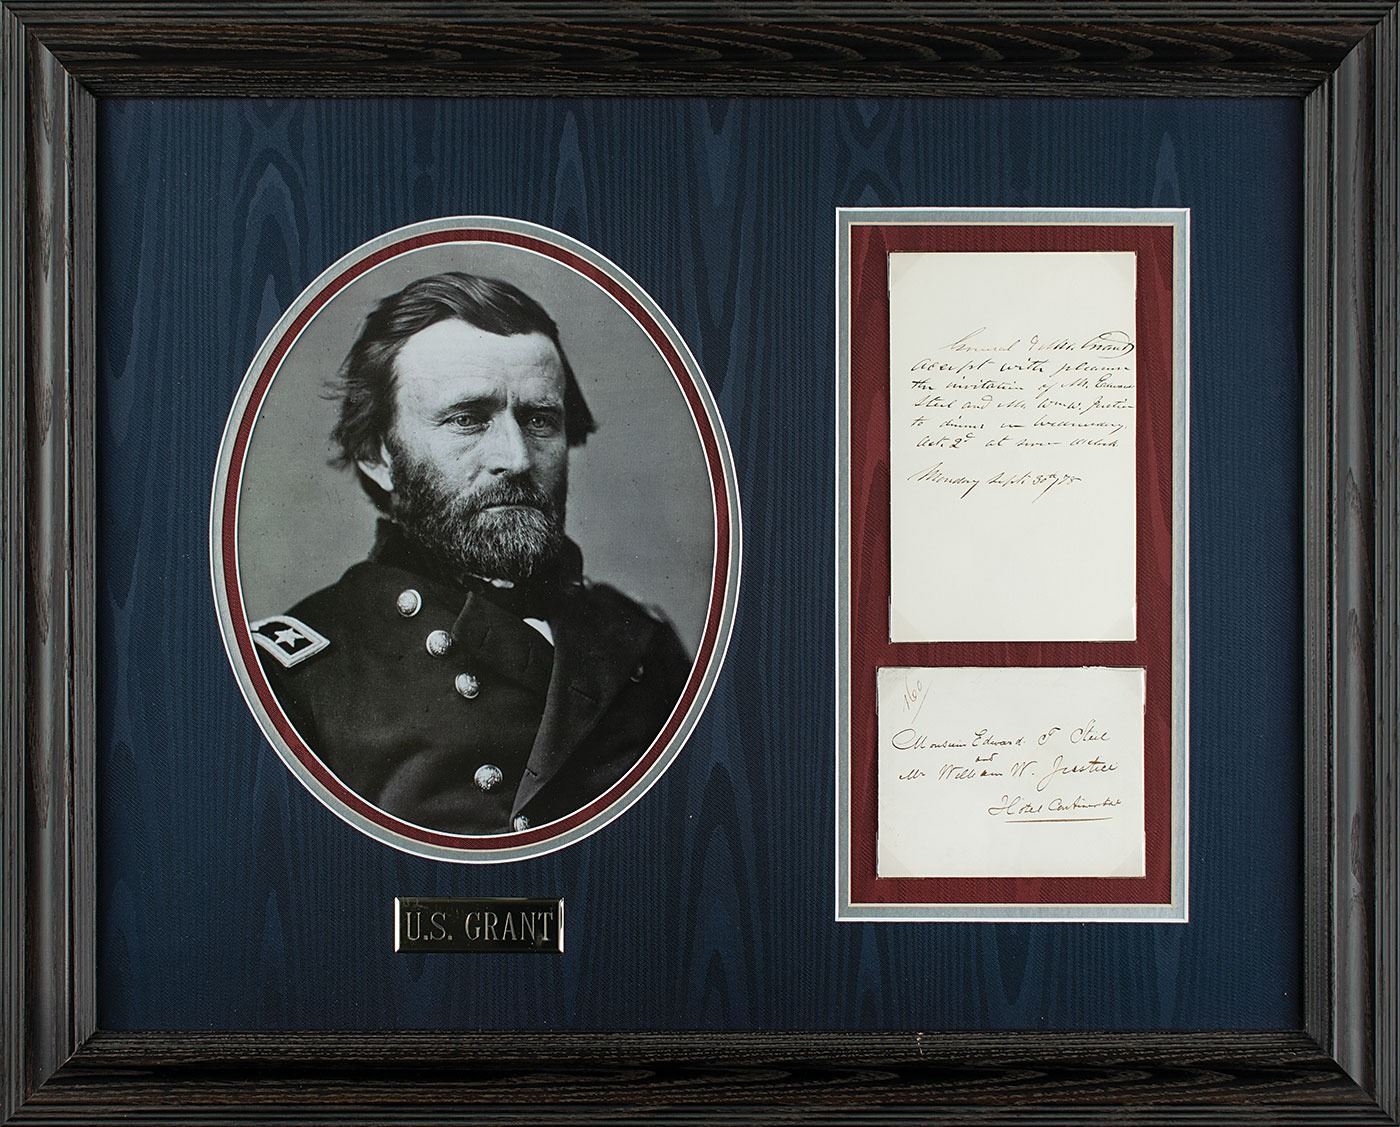 General & Mrs. Grant
accept with pleasure
the invitation of Mr. Edward
Steel and Mr. Wm. W. Justice
to dinner on Wednesday
Oct. 2d at seven o'clock
Monday Sept. 30th /78
Monsieur Edward T. Steel
and
Mr William W. Justice
Hotel Continental
U.S. GRANT